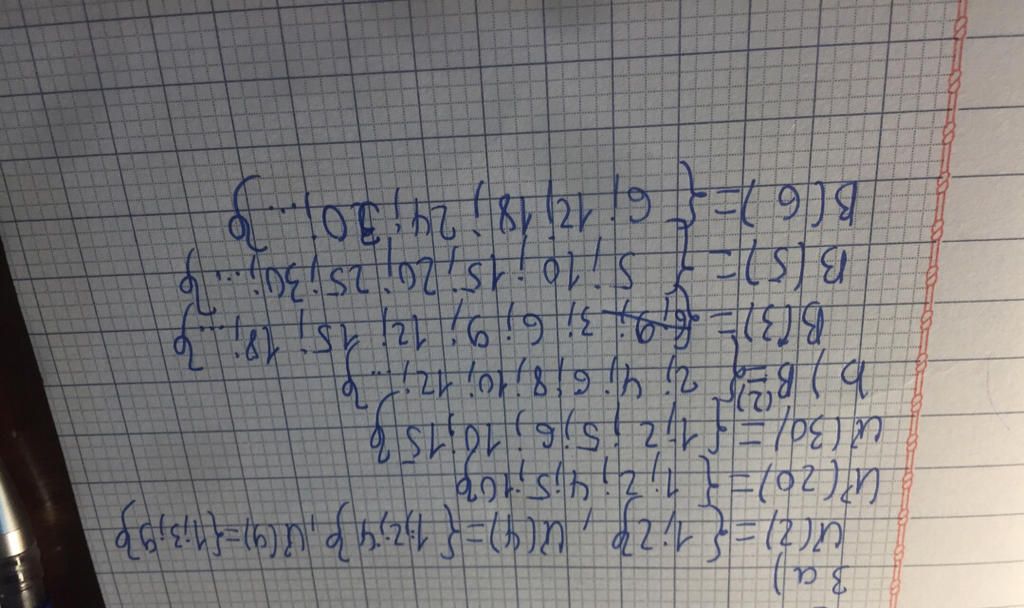 3 a)
Ư(2)={1;2}, Ư(4)={1;2;4}, Ư(9)={1;3;9}
Ư(20)={1;2;4;5;10}
Ư(30)={1;2;5;6;10;15}
b) B(2)={2;4;6;8;10;12;...}
B(3)={3;6;9;12;15;18;...}
B(5)={5;10;15;20;25;30;...}
B(6)={6;12;18;24;30;...}